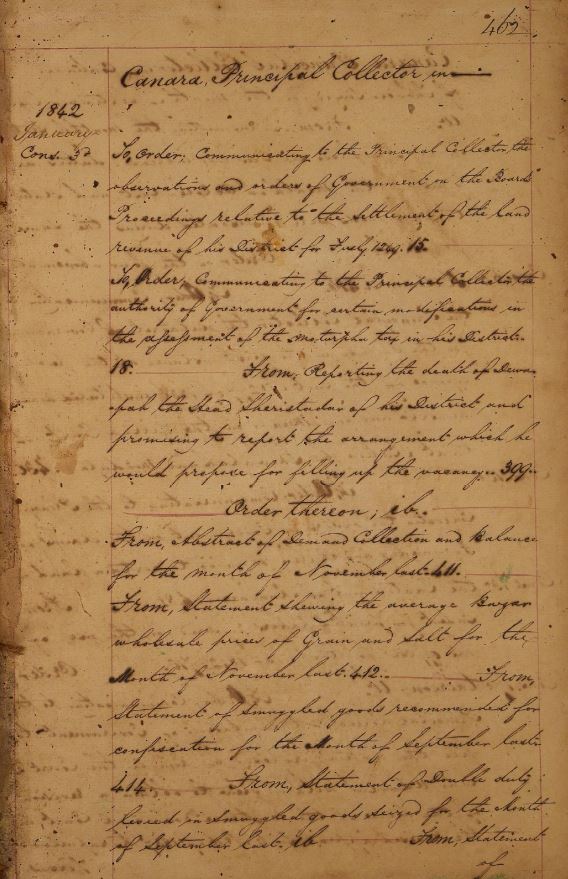 462
Canara, Principal Collector in
1842
January
Cons. 3d
To, Order, Communicating to the Principal Collector, the
observations and orders of Government on the Boards
Proceedings relative to the Settlement of the land
revenue of his District for Fusly 1249. 15.
To, Order, Communicating to the Principal Collector the
authority of Government for certain modifications in
the assessment of the moturpha tax in his District.
18. From, Reporting the death of Dewa
pah the Head Sheristadar of his District and
promising to report the arrangement which he
would propose for filling up the vacancy. 399.
Order thereon; ib.
From, Abstract of Demand Collection and Balance
for the month of November last. 411.
From, Statement shewing the average Bazar
wholesale prices of Grain and Salt for the
Month of November last. 412. From,
Statement of smuggled goods recommended for
confiscation for the Month of September last.
414. From, Statement of Double duty
levied in smuggled goods seized for the Month
of September last. ib From, Statement
of